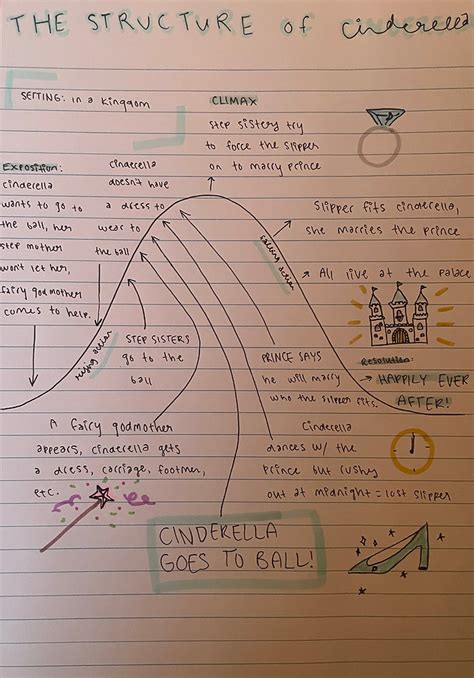 THE STRUCTURE of cinderella
SETTING: in a Kingdom
CLIMAX
step sisters try
to force the slipper
on to marry prince
Exposition:
cinderella
wants to go to
the ball, her
step mother
won't let her,
fairy godmother
comes to help.
cinderella
doesn't have
a dress to
wear to
the ball
rising action
falling action
Slipper fits cinderella,
she marries the prince
All live at the palace
STEP SISTERS
go to the
ball
PRINCE SAYS
he will marry
who the slipper fits.
Resolution:
HAPPILY EVER
AFTER!
A fairy godmother
appears, cinderella gets
a dress, carriage, footmen,
etc.
Cinderella
dances w/ the
prince but rushes
out at midnight = lost slipper
CINDERELLA
GOES TO BALL!